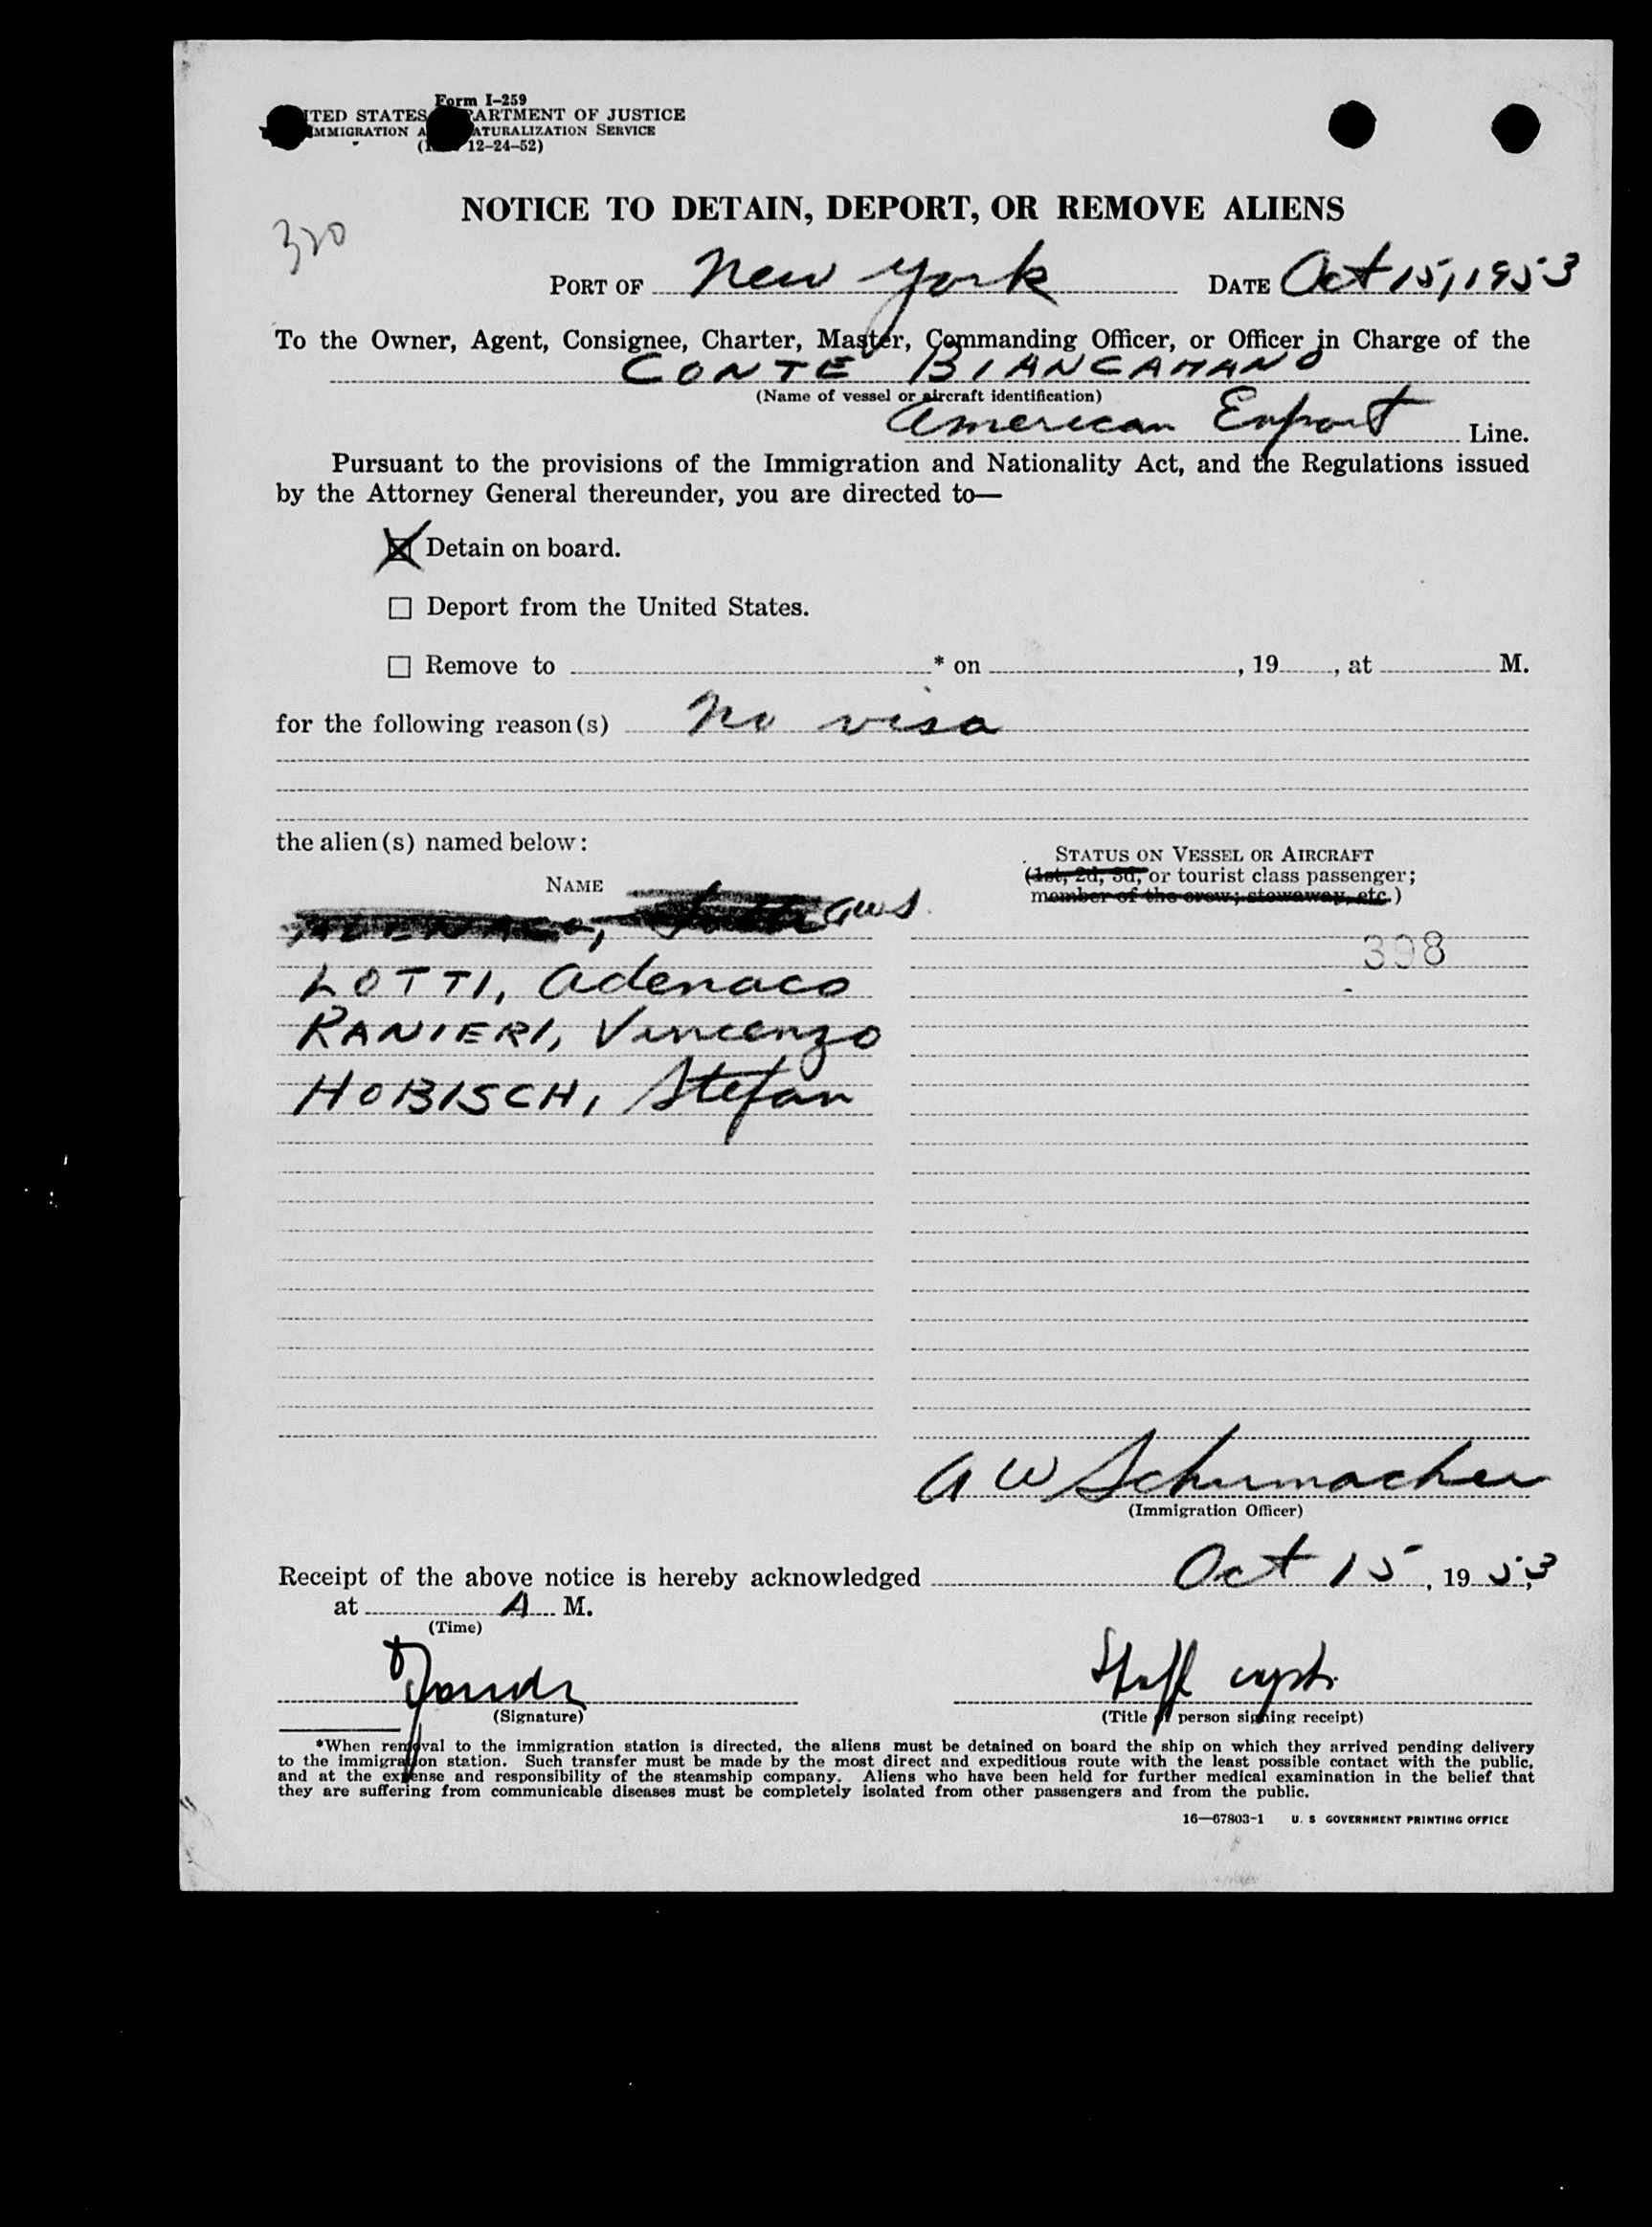 Form I-259
ITED STATES PARTMENT OF JUSTICE
MMIGRATION A ATURALIZATION SERVICE
12-24-52)
NOTICE TO DETAIN, DEPORT, OR REMOVE ALIENS
320
PORT OF New York DATE Oct 15, 1953
To the Owner, Agent, Consignee, Charter, Master, Commanding Officer, or Officer in Charge of the
CONTE BIANCAMANO
(Name of vessel or aircraft identification)
American Export Line.
Pursuant to the provisions of the Immigration and Nationality Act, and the Regulations issued
by the Attorney General thereunder, you are directed to—
☒ Detain on board.
☐ Deport from the United States.
☐ Remove to * on , 19 , at M.
for the following reason(s) No visa
the alien(s) named below:
STATUS ON VESSEL OR AIRCRAFT
NAME
(1st, 2d, 3d, or tourist class passenger;
member of the crew; stowaway, etc.)
AWS
398
LOTTI, Adenaco
RANIERI, Vincenzo
HOBISCH, Stefan
A W Schumacher
(Immigration Officer)
Receipt of the above notice is hereby acknowledged Oct 15, 1953
at A M.
(Time)
Staff
(Signature)
(Title of person signing receipt)
*When removal to the immigration station is directed, the aliens must be detained on board the ship on which they arrived pending delivery
to the immigration station. Such transfer must be made by the most direct and expeditious route with the least possible contact with the public,
and at the expense and responsibility of the steamship company. Aliens who have been held for further medical examination in the belief that
they are suffering from communicable diseases must be completely isolated from other passengers and from the public.
16—67803-1 U. S GOVERNMENT PRINTING OFFICE